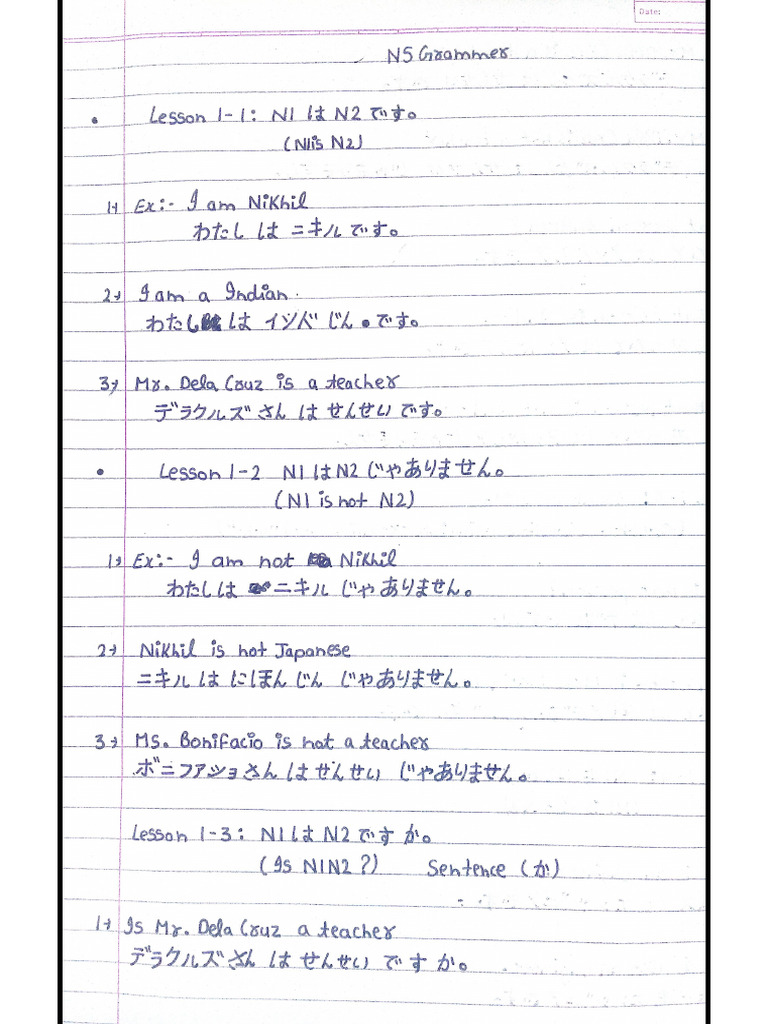 Date:
N5 Grammer
• Lesson 1-1: N1 は N2 です。
(N1 is N2)
1→ Ex:- I am Nikhil
わたし は ニキル です。
2→ I am a Indian.
わたし は インド じん です。
3→ Mr. Dela Cruz is a teacher
デラクルズ さん は せんせい です。
• Lesson 1-2 N1 は N2 じゃありません。
(N1 is not N2)
1→ Ex:- I am not Nikhil
わたし は ニキル じゃ ありません。
2→ Nikhil is not Japanese
ニキル は にほん じん じゃありません。
3→ MS. Bonifacio is not a teacher
ボニファショ さん は せんせい じゃありません。
Lesson 1-3: N1 は N2 です か。
(Is N1 N2?) Sentence (か)
1→ Is Mr. Dela Cruz a teacher
デラクルズ さん は せんせい です か。